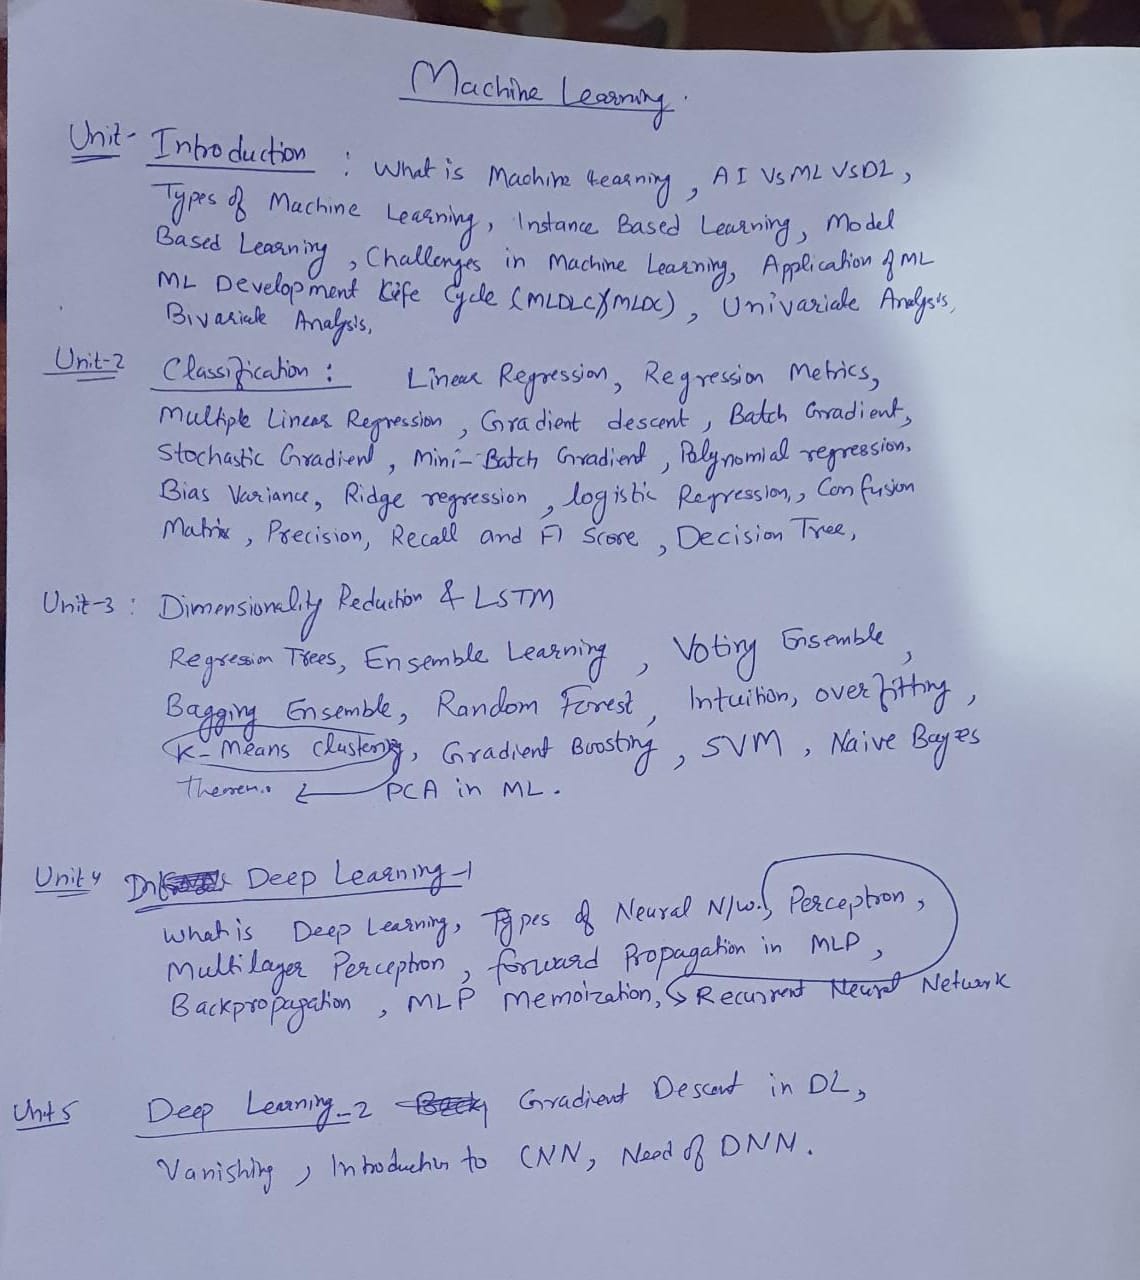 Machine Learning.
Unit- Introduction : What is Machine Learning, AI Vs ML Vs DL,
Types of Machine Learning, Instance Based Learning, Model
Based Learning, Challenges in Machine Learning, Application of ML
ML Development Life Cycle (MLDLC)(MLDC), Univariate Analysis,
Bivariate Analysis,
Unit-2 Classification : Linear Regression, Regression Metrics,
Multiple Linear Regression, Gradient descent, Batch Gradient,
Stochastic Gradient, Mini-Batch Gradient, Polynomial regression,
Bias Variance, Ridge regression, logistic Regression,, Confusion
Matrix, Precision, Recall and F1 Score, Decision Tree,
Unit-3 : Dimensionality Reduction & LSTM
Regression Trees, Ensemble Learning, Voting Ensemble,
Bagging Ensemble, Random Forest, Intuition, over fitting,
K-Means clustering, Gradient Boosting, SVM, Naive Bayes
Theorem. PCA in ML.
Unit 4 Deep Learning-1
What is Deep Learning, Types of Neural N/w., Perceptron,
Multilayer Perceptron, forward Propagation in MLP,
Backpropagation, MLP Memoization, Recurrent Neural Network
Unit 5 Deep Learning-2 Gradient Descent in DL,
Vanishing, Introduction to CNN, Need of DNN.